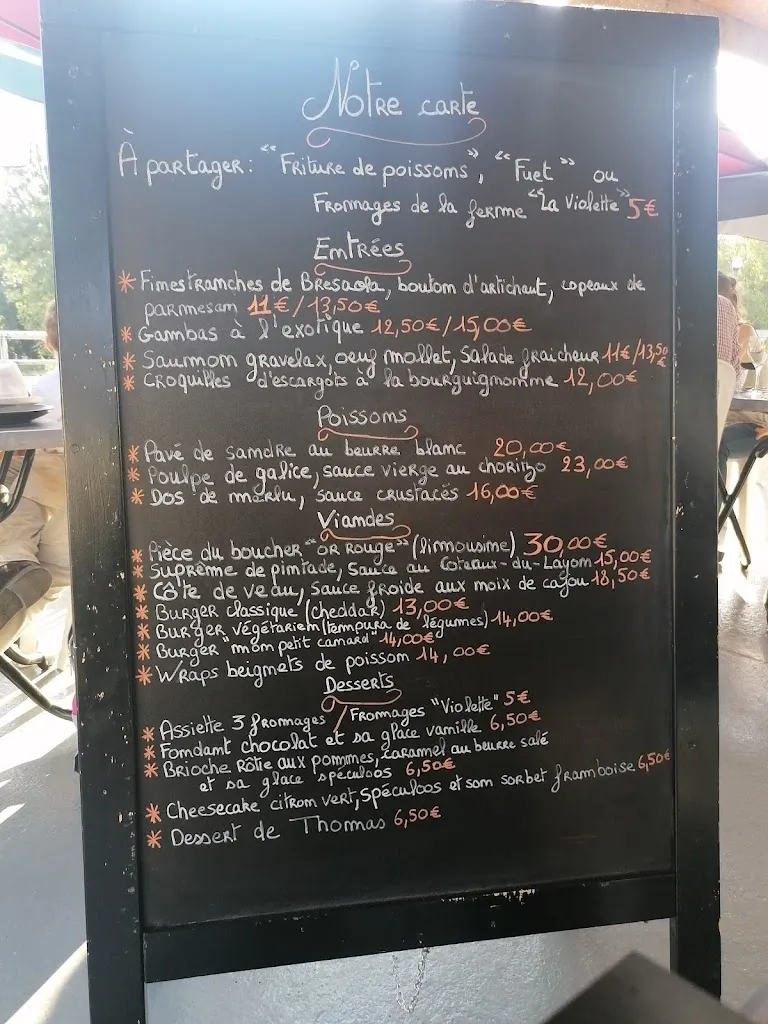 Notre carte
À partager : "Friture de poissons", "Fuet" ou
Fromages de la ferme "La Violette" 5€
Entrées
* Finestranches de Bresaola, bouton d'artichaut, copeaux de
parmesan 11€/13,50€
* Gambas à l'exotique 12,50€/15,00€
* Saumon gravelax, oeuf mollet, Salade fraicheur 11€/13,50€
* Croquilles d'escargots à la bourguignonne 12,00€
Poissons
* Pavé de sandre au beurre blanc 20,00€
* Poulpe de galice, sauce vierge au chorizo 23,00€
* Dos de merlu, sauce crustacés 16,00€
Viandes
* Pièce du boucher "OR Rouge" (limousine) 30,00€
* Suprême de pintade, sauce au Coteaux-du-Layon 15,00€
* Côte de veau, sauce froide aux noix de cajou 18,50€
* Burger classique (cheddar) 13,00€
* Burger végétarien (tempura de légumes) 14,00€
* Burger "mon petit canard" 14,00€
* Wraps beignets de poisson 14,00€
Desserts
* Assiette 3 fromages / Fromages "Violette" 5€
* Fondant chocolat et sa glace vanille 6,50€
* Brioche Rôtie aux pommes, caramel au beurre salé
et sa glace spéculoos 6,50€
* Cheesecake citron vert, spéculoos et son sorbet framboise 6,50€
* Dessert de Thomas 6,50€